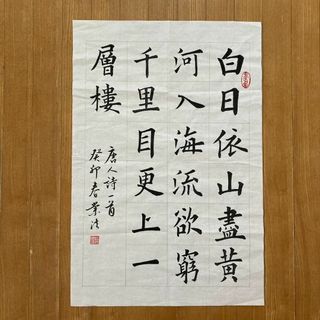 白日依山盡黃
河入海流欲窮
千里目更上一
層樓
唐人詩一首
癸卯春業